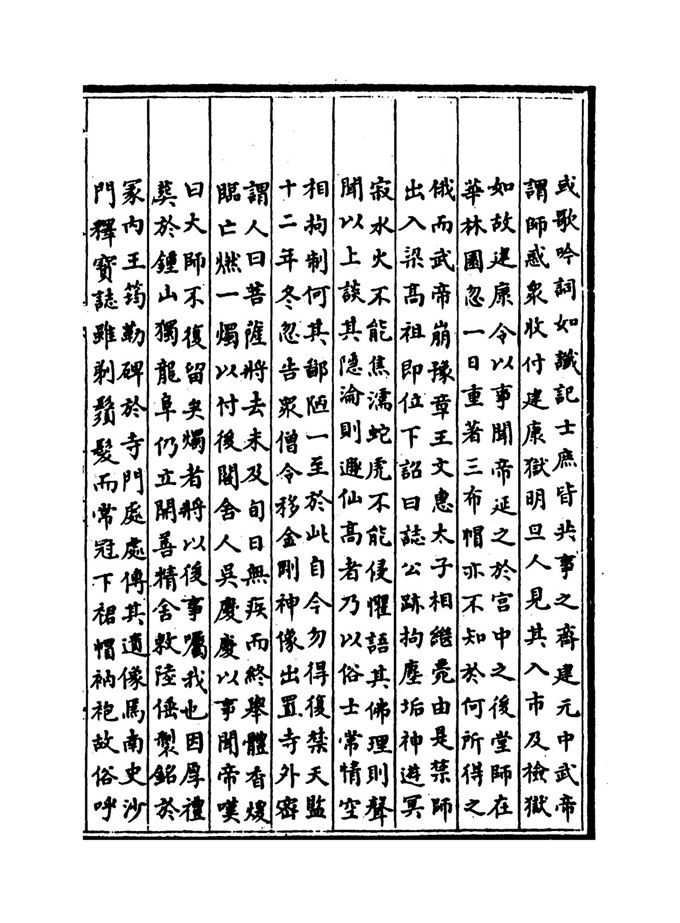 或歌吟詞如讖記士庶皆共事之齊建元中武帝
謂師惑衆收付建康獄明旦人見其入市及檢獄
如故建康令以事聞帝延之於宮中之後堂師在
華林園忽一日重著三布帽亦不知於何所得之
俄而武帝崩豫章王文惠太子相繼薨由是禁師
出入梁髙祖即位下詔曰誌公跡拘塵垢神遊冥
寂水火不能焦濡蛇虎不能侵懼語其佛理則聲
聞以上談其隠淪則遯仙髙者乃以俗士常情空
相拘制何其鄙陋一至於此自今勿得復禁天監
十二年冬忽告衆僧令移金剛神像出置寺外密
謂人曰菩薩將去未及旬日無疾而終舉體香煗
臨亡燃一燭以付後閣舍人吳慶慶以事聞帝嘆
曰大師不復留矣燭者將以後事囑我也因厚禮
葬於鍾山獨龍阜仍立開善精舍敕陸倕製銘於
冢内王筠勒碑於寺門處處傳其遺像焉南史沙
門釋寶誌雖剃鬚髮而常冠下裙帽衲袍故俗呼